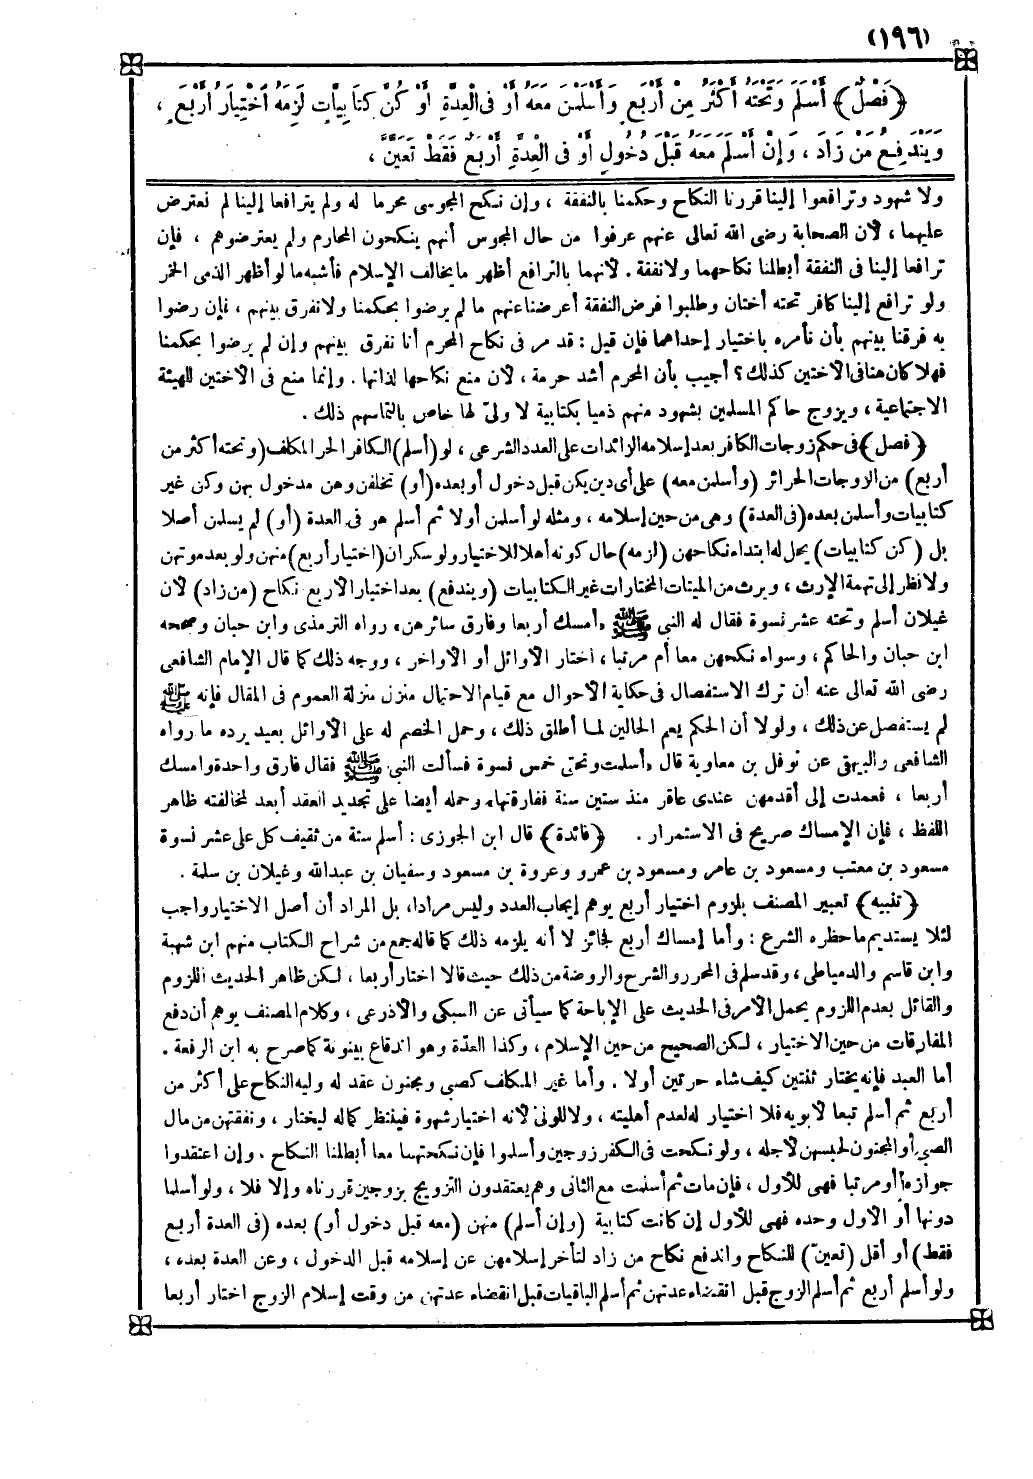 (١٩٦)
﴿فَصْلٌ﴾ أَسْلَمَ وَتَحْتَهُ أَكْثَرُ مِنْ أَرْبَعٍ وَأَسْلَمْنَ مَعَهُ أَوْ فِى الْعِدَّةِ أَوْ كُنَّ كِتَابِيَّاتٍ لَزِمَهُ اخْتِيَارُ أَرْبَعٍ ،
وَيَنْدَفِعُ مَنْ زَادَ ، وَإِنْ أَسْلَمَ مَعَهُ قَبْلَ دُخُولٍ أَوْ فِى الْعِدَّةِ أَرْبَعٌ فَقَطْ تَعَيَّنَّ ،
ولا شهود وترافعوا إلينا قررنا النكاح وحكمنا بالنفقة ، وإن نكح المجوسى محرما له ولم يترافعا إلينا لم نعترض
عليهما ، لأن الصحابة رضى الله تعالى عنهم عرفوا من حال المجوس أنهم ينكحون المحارم ولم يعترضوهم ، فإن
ترافعا إلينا فى النفقة أبطلنا نكاحهما ولا نفقة . لأنهما بالترافع أظهر ما يخالف الإسلام فأشبه ما لو أظهر الذمى الخمر
ولو ترافع إلينا كافر تحته أختان وطلبوا فرض النفقة أعرضنا عنهم ما لم يرضوا بحكمنا ولا نفرق بينهم ، فإن رضوا
به فرقنا بينهم بأن نأمره باختيار إحداهما فإن قيل : قد مر فى نكاح المحرم أنا نفرق بينهم وإن لم يرضوا بحكمنا
فهلا كان هنا فى الأختين كذلك ؟ أجيب بأن المحرم أشد حرمة ، لأن منع نكاحها لذاتها . وإنما منع فى الأختين للهيئة
الاجتماعية ، ويزوج حاكم المسلمين بشهود منهم ذميا بكتابية لا ولىّ لها خاص بالتماسهم ذلك .
﴿فصل﴾ فى حكم زوجات الكافر بعد إسلامه الزائدات على العدد الشرعى ، لو (أسلم) الكافر الحر المكلف (وتحته أكثر من
أربع) من الزوجات الحرائر (وأسلمن معه) على أى دين يكن قبل دخول أو بعده (أو) تخلفن وهن مدخول بهن وكن غير
كتابيات وأسلمن بعده (فى العدة) وهى من حين إسلامه ، ومثله لو أسلمن أولا ثم أسلم هو فى العدة (أو) لم يسلمن أصلا
بل (كن كتابيات) يحل له ابتداء نكاحهن (لزمه) حال كونه أهلا للاختيار ولو سكران (اختيار أربع) منهن ولو بعد موتهن
ولا نظر إلى تهمة الإرث ، ويرث من الميتات المختارات غير الكتابيات (ويندفع) بعد اختيار الأربع نكاح (من زاد) لأن
غيلان أسلم وتحته عشر نسوة فقال له النبى ﷺ «أمسك أربعا وفارق سائرهن» رواه الترمذى وابن حبان وصححه
ابن حبان والحاكم ، وسواء نكحهن معا أم مرتبا ، اختار الأوائل أو الأواخر ، ووجه ذلك كما قال الإمام الشافعى
رضى الله تعالى عنه أن ترك الاستفصال فى حكاية الأحوال مع قيام الاحتمال منزل منزلة العموم فى المقال فإنه ﷺ
لم يستفصل عن ذلك ، ولولا أن الحكم يعم الحالين لما أطلق ذلك ، وحمل الخصم له على الأوائل بعيد يرده ما رواه
الشافعى والبيهقى عن نوفل بن معاوية قال «أسلمت وتحتى خمس نسوة فسألت النبى ﷺ فقال فارق واحدة وامسك
أربعا ، فعمدت إلى أقدمهن عندى عاقر منذ ستين سنة ففارقتها» وحمله أيضا على تجديد العقد أبعد لمخالفته ظاهر
اللفظ ، فإن الإمساك صريح فى الاستمرار . ﴿فائدة﴾ قال ابن الجوزى : أسلم ستة من ثقيف كل على عشر نسوة
مسعود بن معتب ومسعود بن عامر ومسعود بن عمرو وعروة بن مسعود وسفيان بن عبدالله وغيلان بن سلمة .
﴿تنبيه﴾ تعبير المصنف بلزوم اختيار أربع يوهم إيجاب العدد وليس مرادا، بل المراد أن أصل الاختيار واجب
لئلا يستديم ما حظره الشرع : وأما إمساك أربع فجائز لا أنه يلزمه ذلك كما قاله جمع من شراح الكتاب منهم ابن شهبة
وابن قاسم والدمياطى ، وقد سلم فى المحرر والشرح والروضة من ذلك حيث قالا اختار أربعا ، لكن ظاهر الحديث اللزوم
والقائل بعدم اللزوم يحمل الأمر فى الحديث على الإباحة كما سيأتى عن السبكى والأذرعى ، وكلام المصنف يوهم أن دفع
المفارقات من حين الاختيار ، لكن الصحيح من حين الإسلام ، وكذا العدّة وهو اندفاع بينونة كما صرح به ابن الرفعة .
أما العبد فإنه يختار ثنتين كيف شاء حرتين أولا . وأما غير المكلف كصبى ومجنون عقد له وليه النكاح على أكثر من
أربع ثم أسلم تبعا لأبويه فلا اختيار له لعدم أهليته ، ولا للولىّ لأنه اختيار شهوة فينتظر كماله ليختار ، ونفقتهن من مال
الصبى أو المجنون لحبسهن لأجله ، ولو نكحت فى الكفر زوجين وأسلموا فإن نكحتهما معا أبطلنا النكاح . وإن اعتقدوا
جوازه أو مرتبا فهى للأول ، فإن مات ثم أسلمت مع الثانى وهم يعتقدون التزويج بزوجين قررناه وإلا فلا ، ولو أسلما
دونها أو الأول وحده فهى للأول إن كانت كتابية (وإن أسلم) منهن (معه قبل دخول أو) بعده (فى العدة أربع
فقط) أو أقل (تعينّ) للنكاح واندفع نكاح من زاد لتأخر إسلامهن عن إسلامه قبل الدخول ، وعن العدة بعده ،
ولو أسلم أربع ثم أسلم الزوج قبل انقضاء عدتهن ثم أسلم الباقيات قبل انقضاء عدتهن من وقت إسلام الزوج اختار أربعا